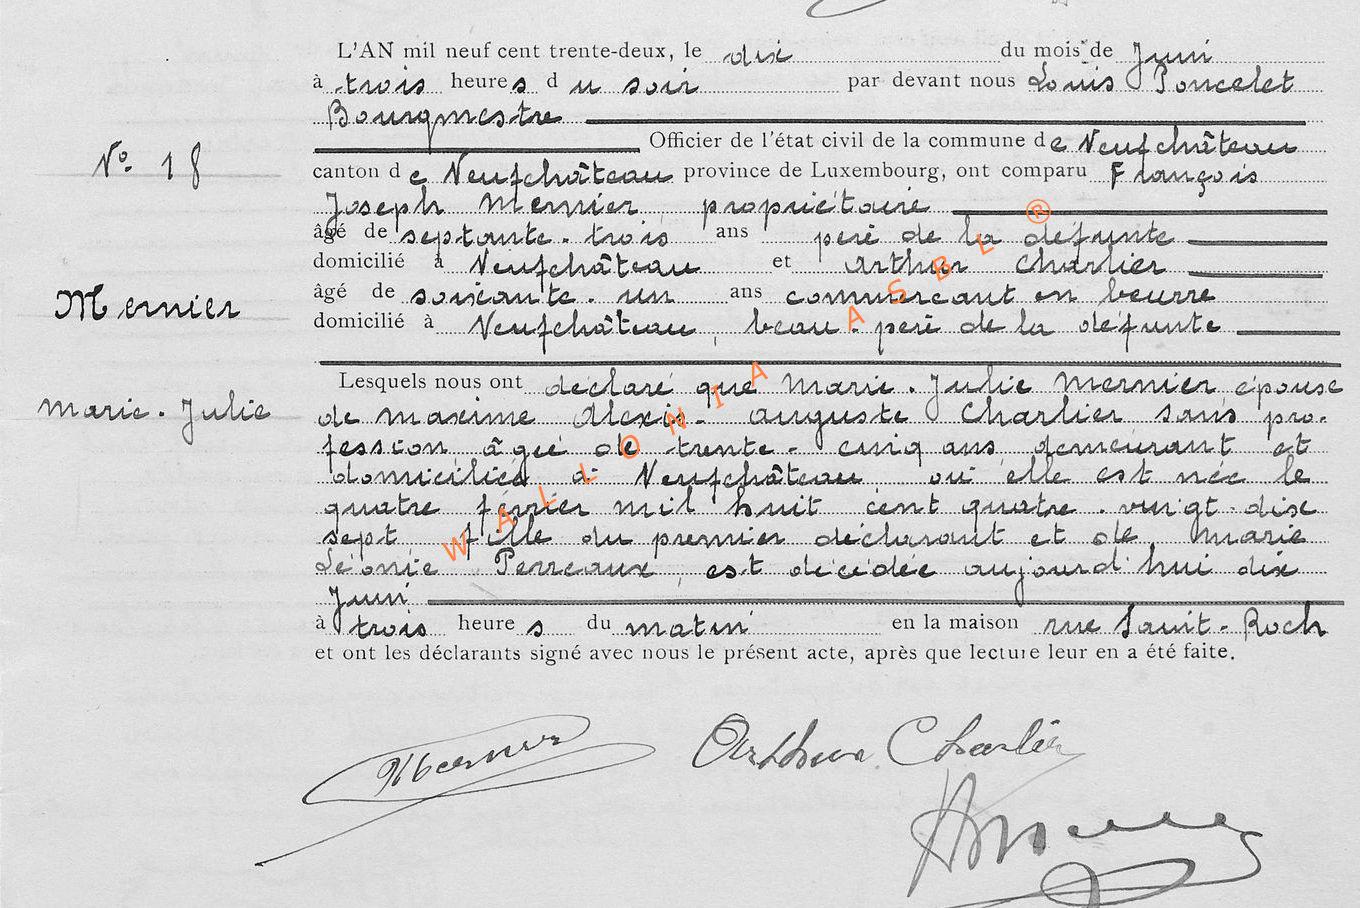 L'AN mil neuf cent trente-deux, le dix du mois de Juin
à trois heures du soir par devant nous Louis Poncelet
Bourgmestre
Officier de l'état civil de la commune de Neufchâteau
N° 18
canton de Neufchâteau province de Luxembourg, ont comparu François
Joseph Mernier, propriétaire
âgé de septante-trois ans peré de la défunte
domicilié à Neufchâteau et Arthur Charlier
âgé de soixante-un ans commercant en beurre
Mernier
domicilié à Neufchâteau, beau-peré de la défunte
Lesquels nous ont déclaré que Marie-Julie Mernier épouse
Marie-Julie
de Maxime Alexis-Auguste Charlier sans pro-
fession âgé de trente-cinq ans demeurant et
domiciliée à Neufchâteau où elle est née le
quatre février mil huit cent quatre-vingt-dix
sept, fille du premier déclarant et de Marie
Léonie Perreaux, est décédée aujourd'hui dix
Juin
à trois heures du matin en la maison rue Saint-Roch
et ont les déclarants signé avec nous le présent acte, après que lecture leur en a été faite.
Mernier Arthur Charlier
WALLONIA ASBL ®